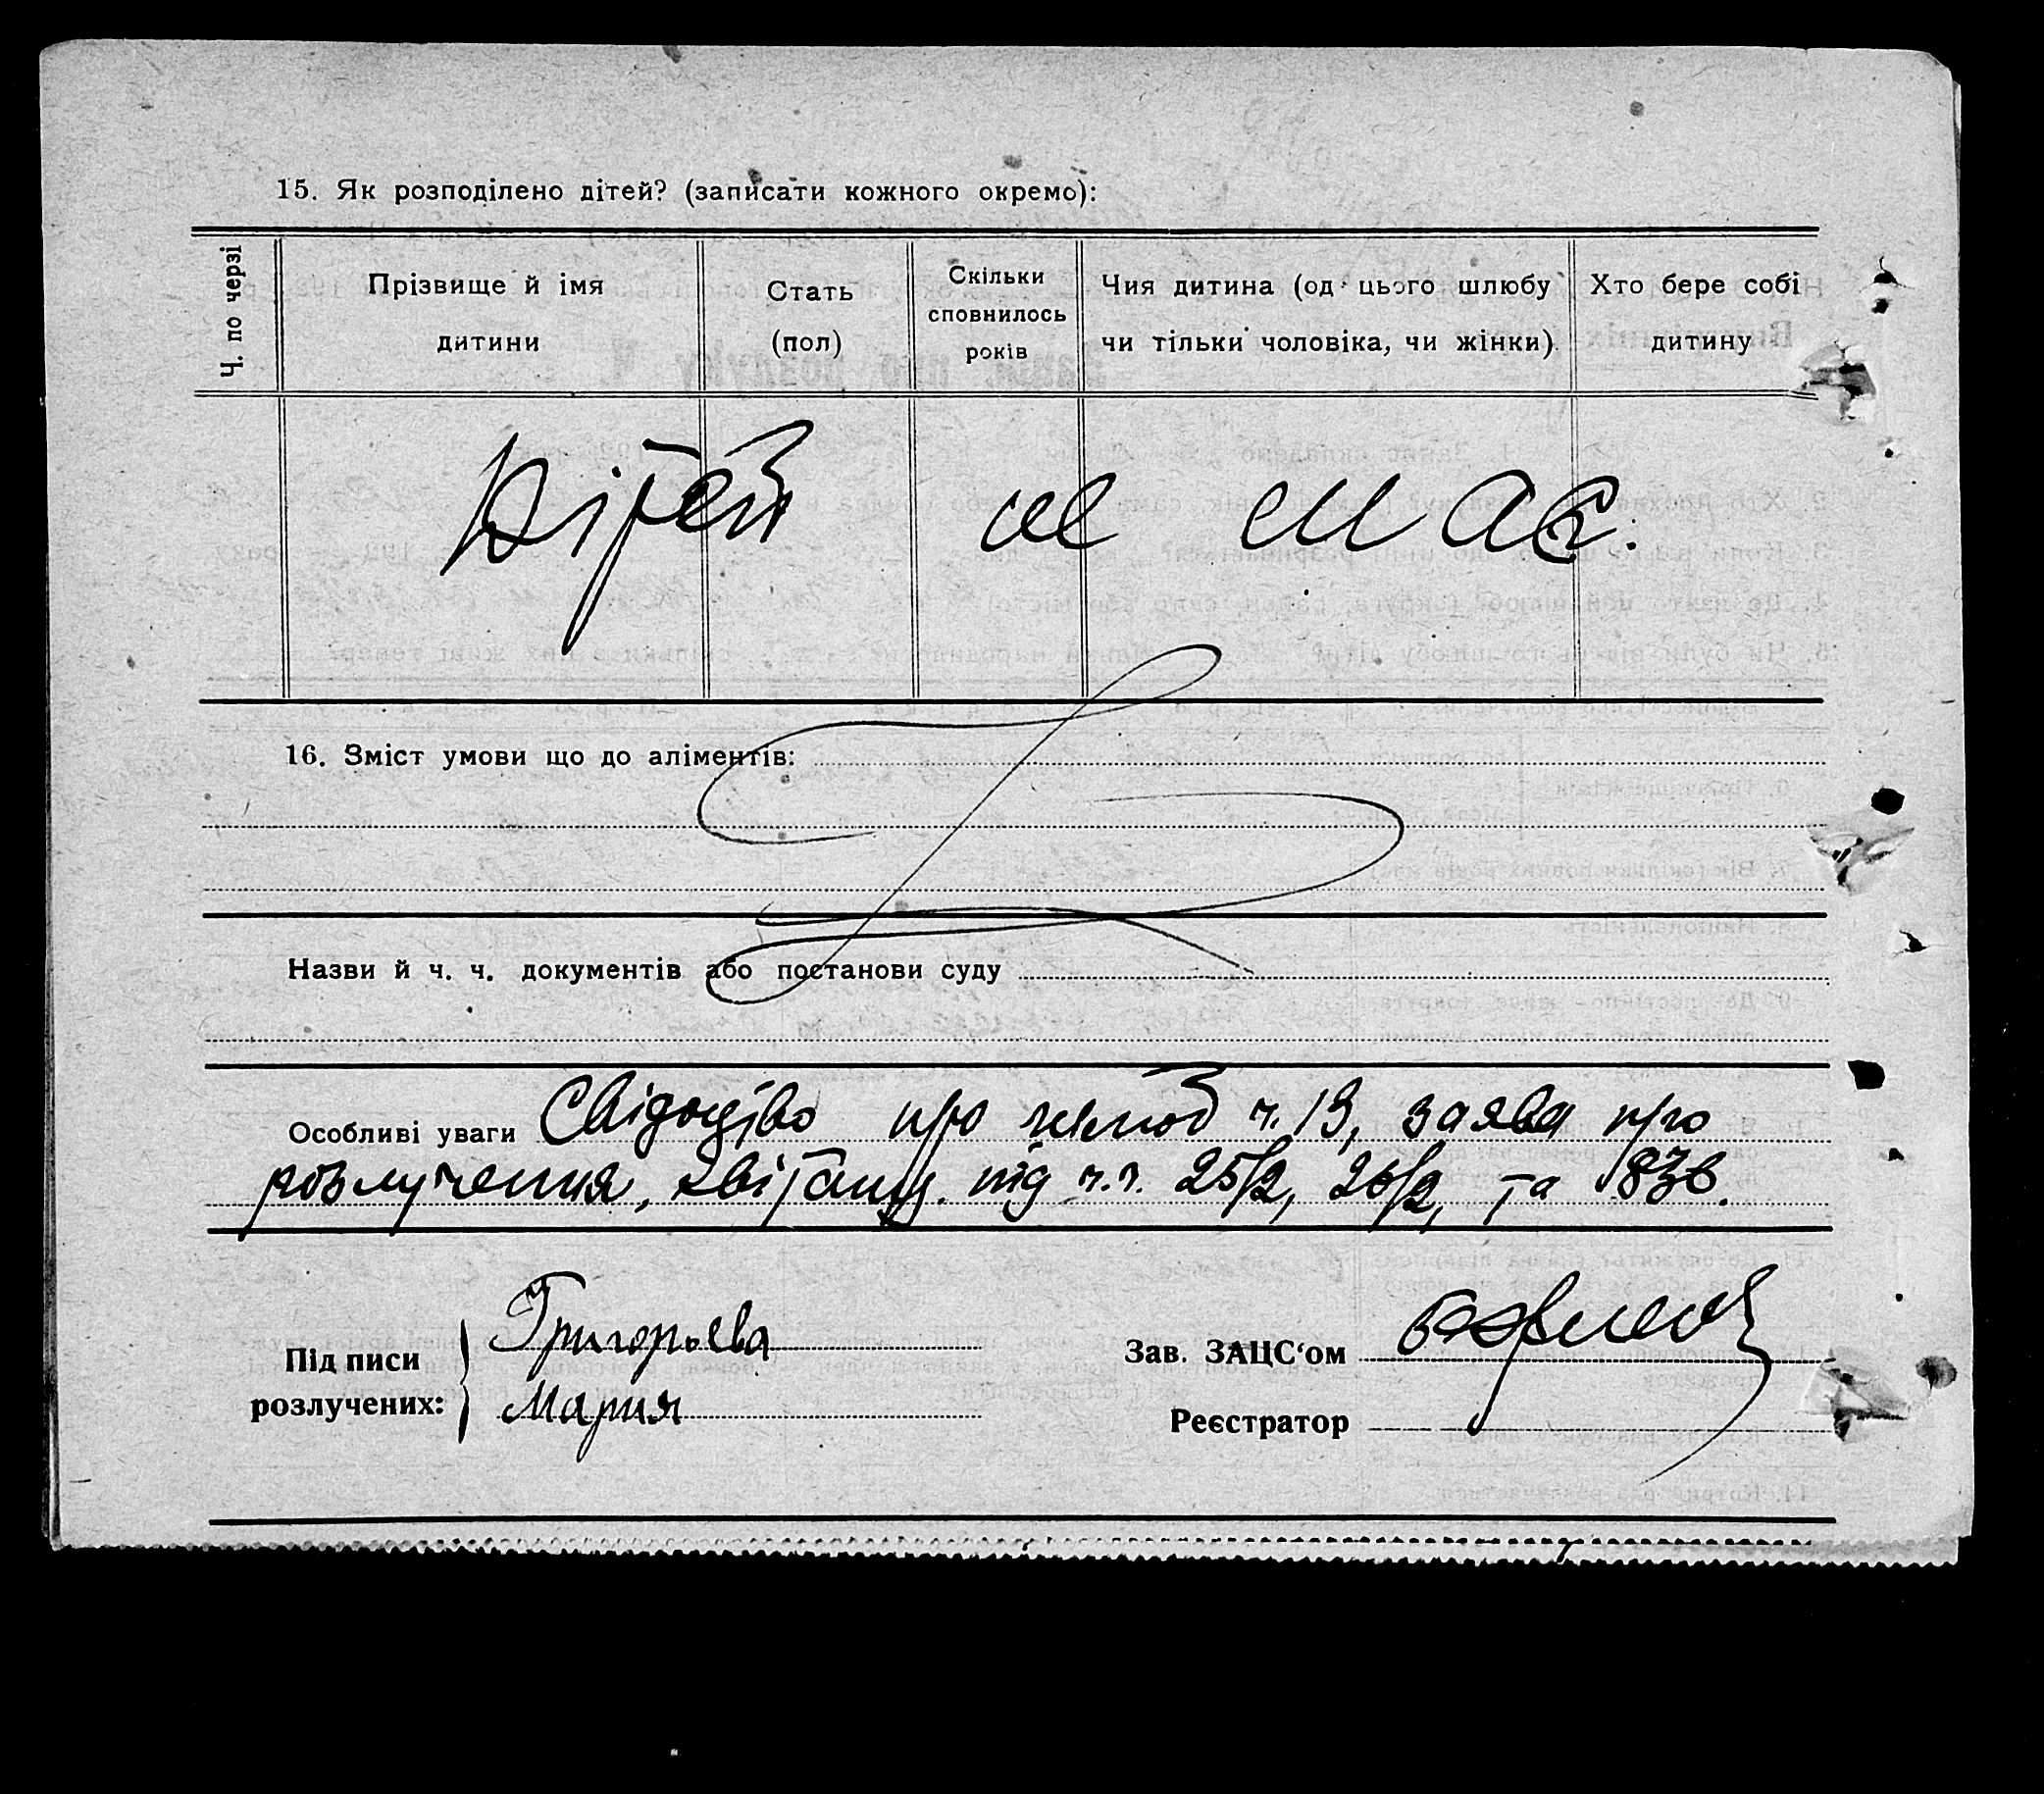 15. Як розподілено дітей? (записати кожного окремо):
Ч. по черзі
Прізвище й імя дитини
Стать (пол)
Скільки сповнилось років
Чия дитина (од цього шлюбу чи тільки чоловіка, чи жінки)
Хто бере собі дитину
Дітей не має.
16. Зміст умови що до аліментів:
Назви й ч. ч. документів або постанови суду
Особливі уваги Свідоцтво про шлюб ч. 13, заява про
розлучення, квітанц. під ч.ч. 25/2, 26/2, та 1836.
Підписи розлучених:
Григорьева
Мария
Зав. ЗАЦС‘ом
Реєстратор